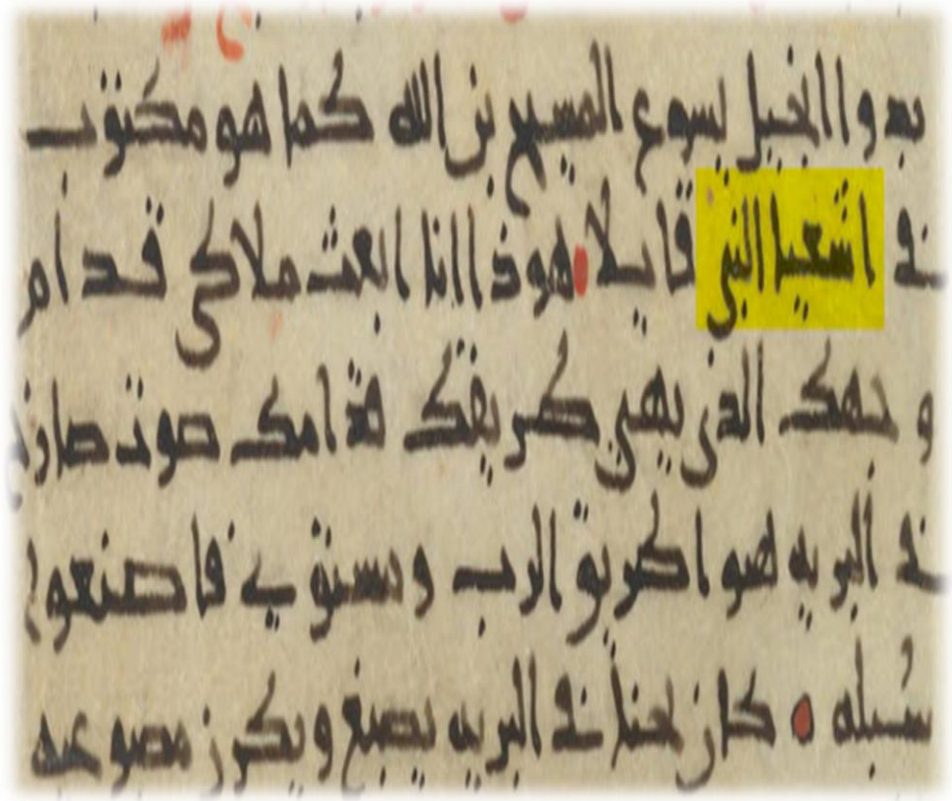 بدوا انجيل يسوع المسيح بن الله كما هو مكتوب
في اشعيا النبي قايلا هوذا انا ابعث ملاكي قدام
وجهك الذي يهيي طريقك قدامك صوت صارخ
في البريه هيوا طريق الرب ويستوي فاصنعوا
سبله كان يحنا في البريه يصبغ ويكرز